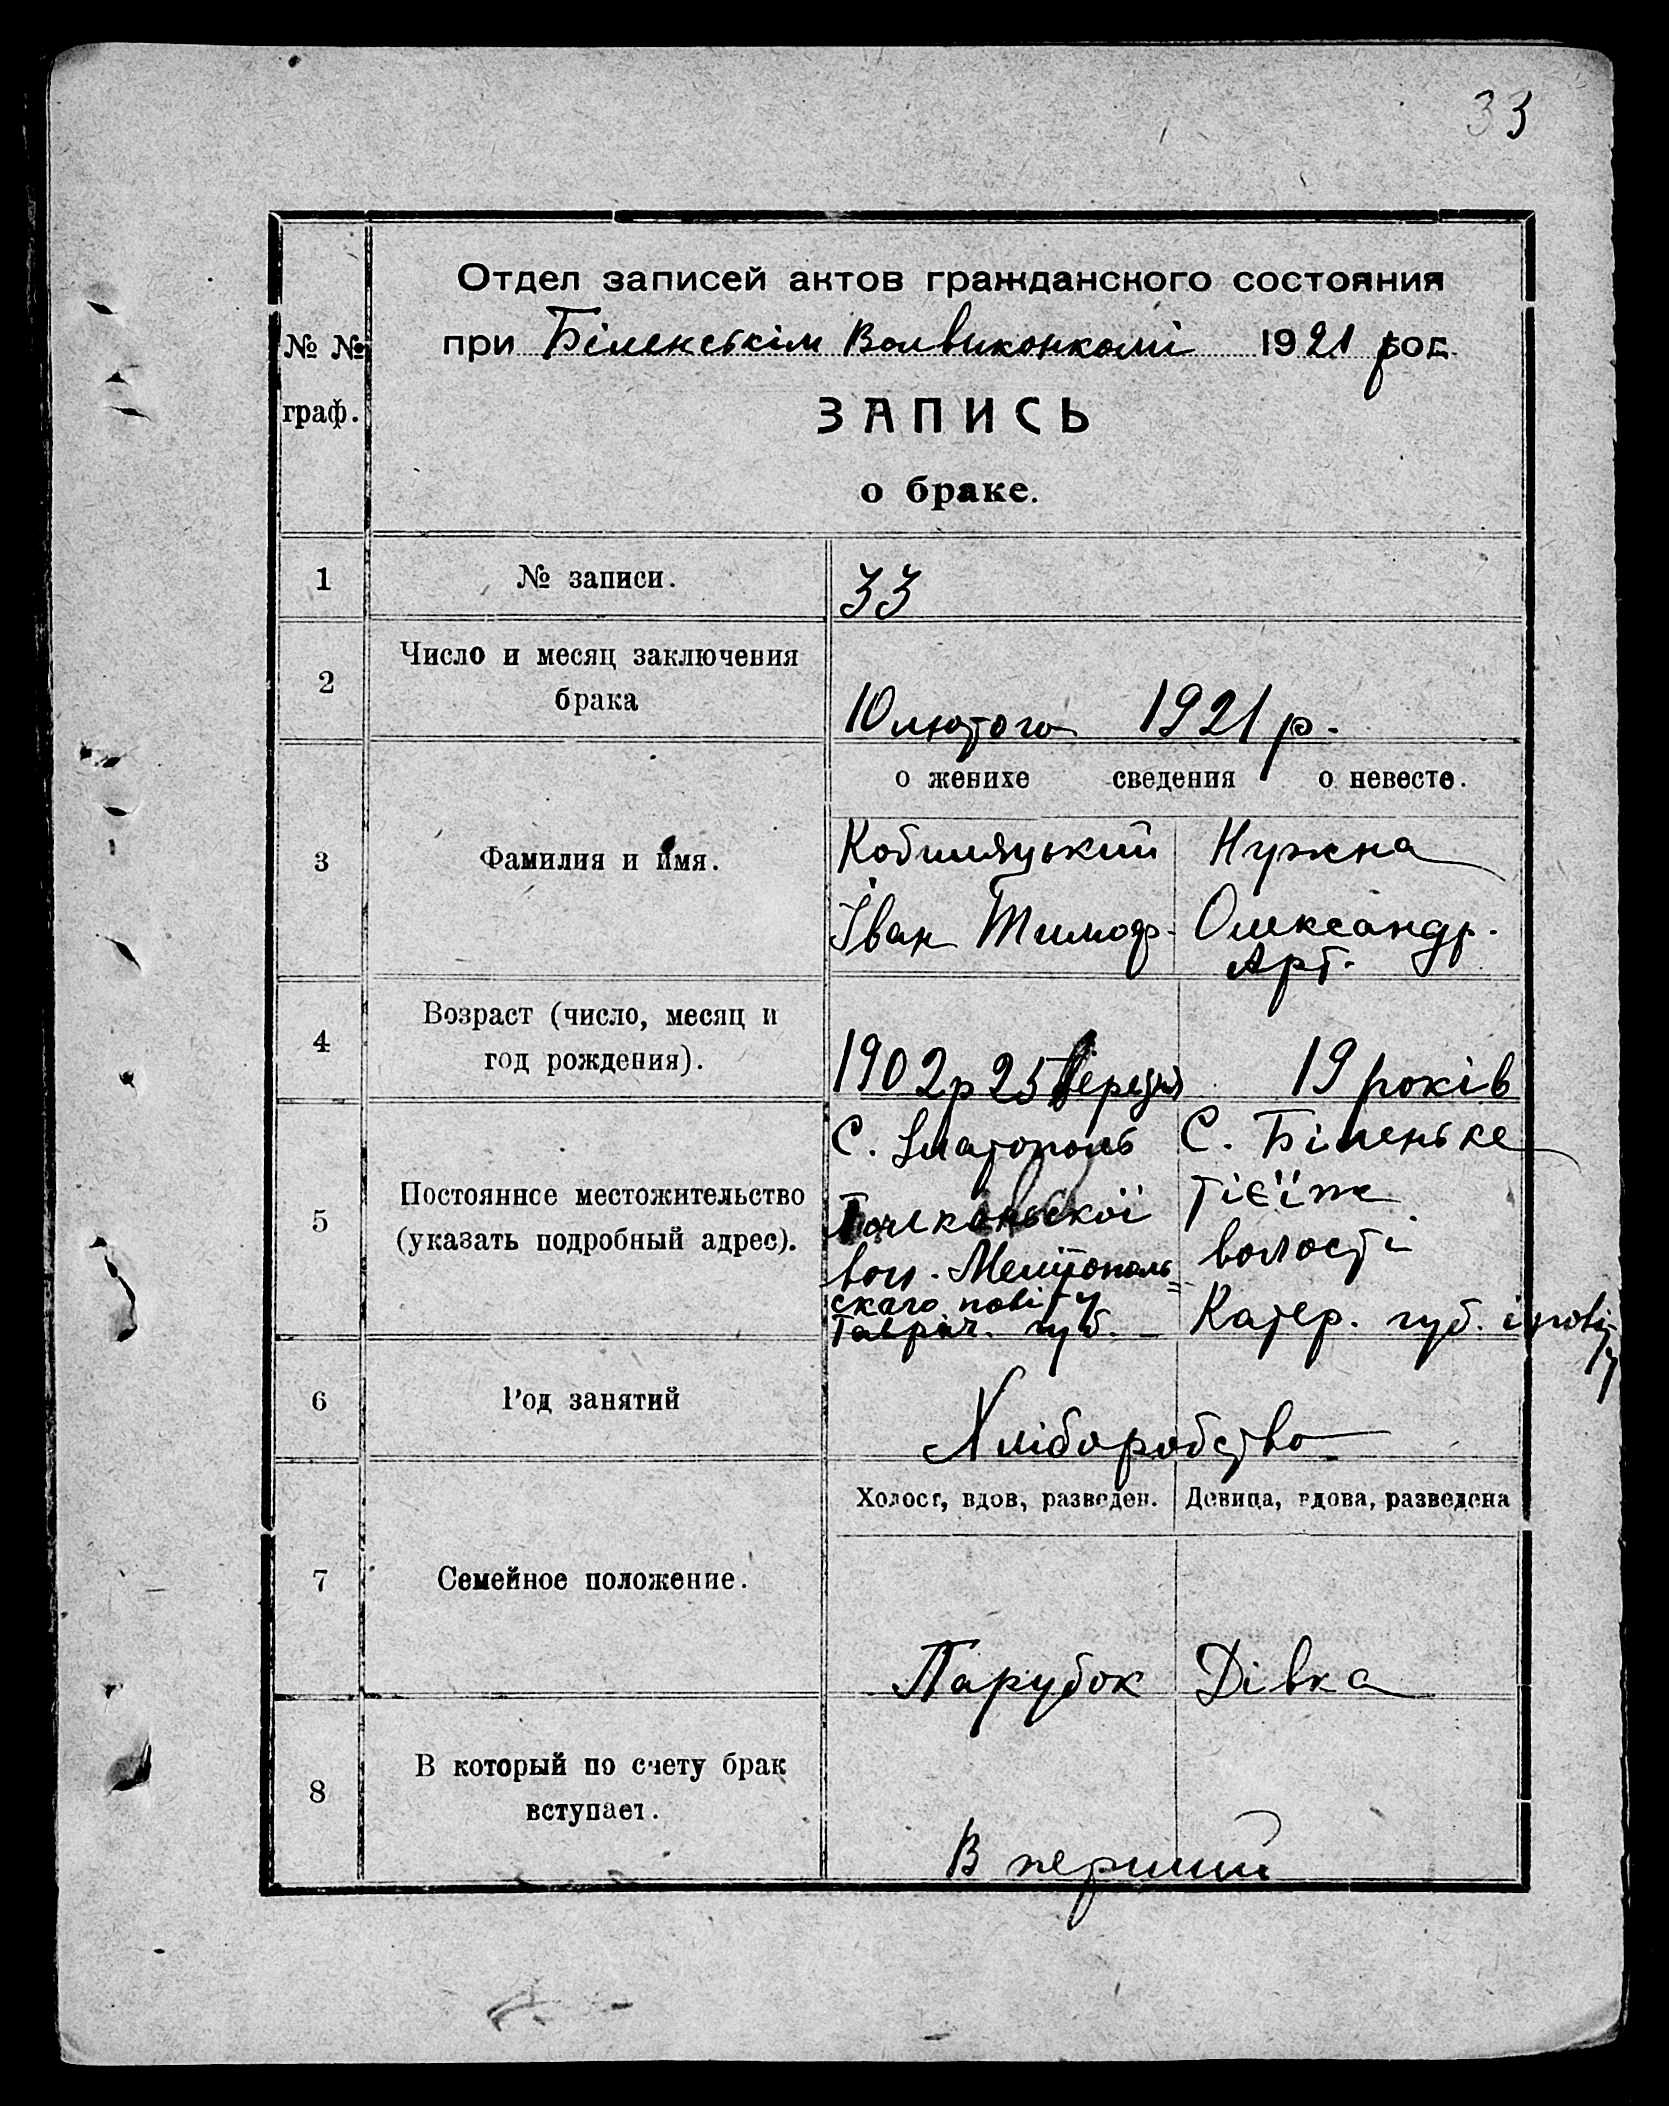 33
Отдел записей актов гражданского состояния
№ №
при Біленськім Волвиконкомі 1921 р год.
граф.
ЗАПИСЬ
о браке.
1
№ записи.
33
2
Число и месяц заключения
брака
10 лютого 1921 р.
о женихе сведения о невесте.
3
Фамилия и имя.
Кобиляцький
Іван Тимоф.
Нужна
Олександр.
Арт.
4
Возраст (число, месяц и
год рождения).
1902 р 25
19 років
5
Постоянное местожительство
(указать подробный адрес).
С. Златополь
вол. Мелітополь
скаго повіту
Тавріч. губ.
С. Біленьке
тієїж
волості
Катер. губ. і повіту
6
Род занятий
Хліборобство
Холост, вдов, разведен.
Девица, вдова, разведена
7
Семейное положение.
Парубок
Дівка
8
В который по счету брак
вступает.
В перший